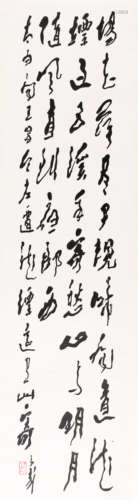 楊花落尽子規啼聞道龍
標過五溪我寄愁心与明月
隨風直到夜郎西
李白聞王昌齡左遷龍標遙有此寄